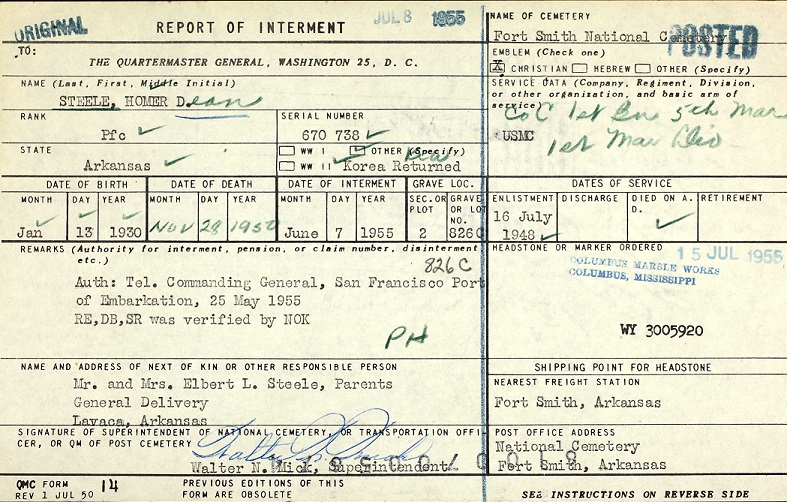 ORIGINAL
REPORT OF INTERMENT
JUL 8 1955
TO:
THE QUARTERMASTER GENERAL, WASHINGTON 25, D. C.
NAME OF CEMETERY
Fort Smith National Cemetery
POSTED
EMBLEM (Check one)
X CHRISTIAN HEBREW OTHER (Specify)
NAME (Last, First, Middle Initial)
STEELE, HOMER Dean
SERVICE DATA (Company, Regiment, Division, or other organization, and basic arm of service)
Co C 1st Bn 5th Mar
USMC
1st Mar Div
RANK
Pfc
SERIAL NUMBER
670 738
STATE
Arkansas
WW I OTHER (Specify)
WW II Korea Returned
DATE OF BIRTH
MONTH DAY YEAR
Jan 13 1930
DATE OF DEATH
MONTH DAY YEAR
Nov 28 1950
DATE OF INTERMENT
MONTH DAY YEAR
June 7 1955
GRAVE LOC.
SEC. OR PLOT
2
GRAVE OR LOT NO.
826C
DATES OF SERVICE
ENLISTMENT DISCHARGE DIED ON A. D. RETIREMENT
16 July
1948
REMARKS (Authority for interment, pension, or claim number, disinterment
etc.)
826 C
Auth: Tel. Commanding General, San Francisco Port
of Embarkation, 25 May 1955
RE,DB,SR was verified by NOK
PH
HEADSTONE OR MARKER ORDERED
15 JUL 1955
COLUMBUS MARBLE WORKS
COLUMBUS, MISSISSIPPI
WY 3005920
NAME AND ADDRESS OF NEXT OF KIN OR OTHER RESPONSIBLE PERSON
Mr. and Mrs. Elbert L. Steele, Parents
General Delivery
Lavaca, Arkansas
SHIPPING POINT FOR HEADSTONE
NEAREST FREIGHT STATION
Fort Smith, Arkansas
SIGNATURE OF SUPERINTENDENT OF NATIONAL CEMETERY, OR TRANSPORTATION OFFI-
CER, OR QM OF POST CEMETERY
Walter N. Mick, Superintendent
POST OFFICE ADDRESS
National Cemetery
Fort Smith, Arkansas
QMC FORM 14
REV 1 JUL 50
PREVIOUS EDITIONS OF THIS
FORM ARE OBSOLETE
SEE INSTRUCTIONS ON REVERSE SIDE